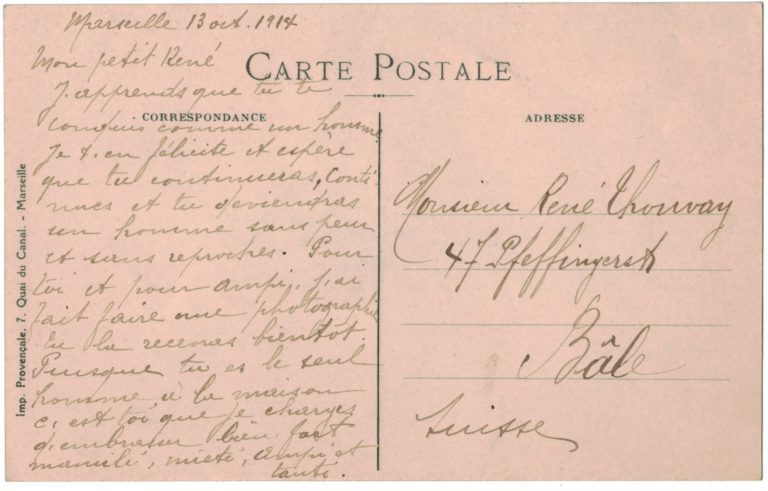 Marseille 13 oct. 1914
Mon petit René
CARTE POSTALE
J'apprends que tu te
CORRESPONDANCE
conduis comme un homme
Je t'en félicite et espère
que tu continueras, Conti
nues et tu deviendras
un homme sans peur
et sans reproches. Pour
toi et pour ampi, j'ai
fait faire une photographie
Tu la recevras bientôt.
Puisque tu es le seul
homme à la maison
c'est toi que je charges
d'embrasser bien fort
mamili, mieti, ampi et
tanti.
ADRESSE
Monsieur René Thouvay
47 Pfeffingerstr
Bâle
Suisse
Imp. Provençale, 7, Quai du Canal. - Marseille